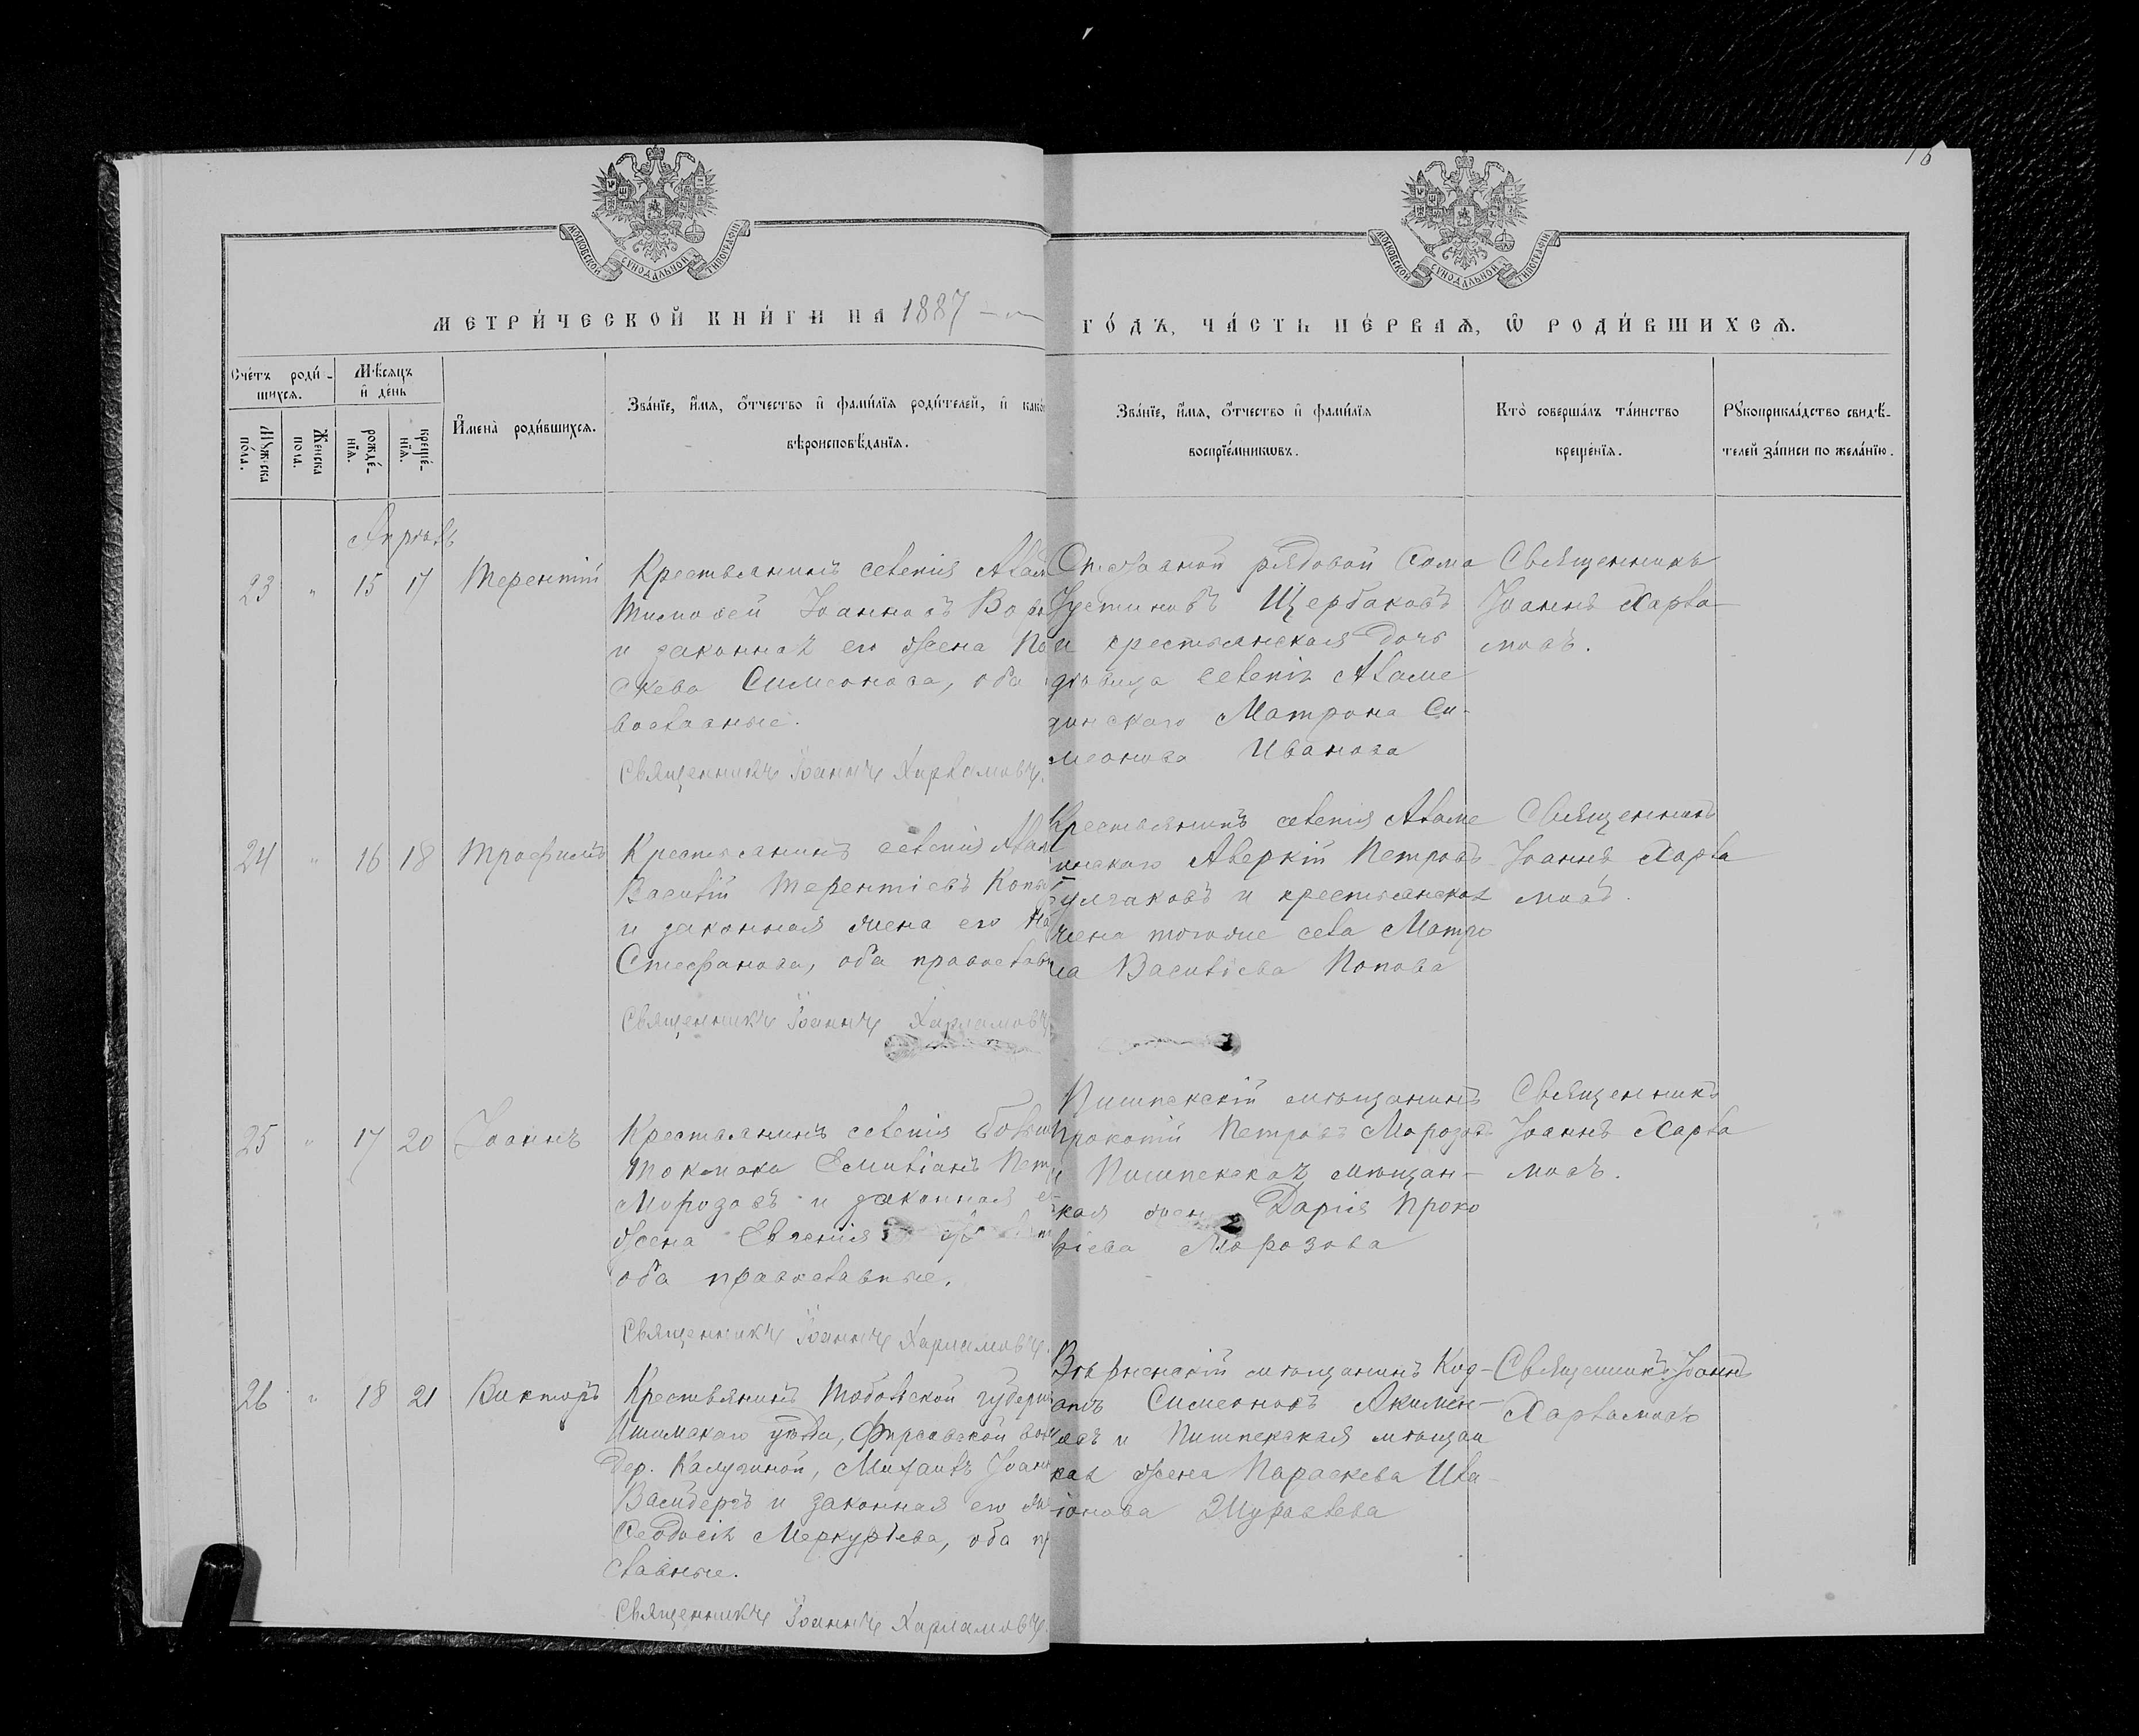 16
МОСКОВСКОЙ СѴНОДАЛЬНОЙ ТИПОГРАФІИ
МОСКОВСКОЙ СѴНОДАЛЬНОЙ ТИПОГРАФІИ
МЕТРИ́ЧЕСКОЙ КНИ́ГИ НА 1887
ГО́ДЪ, ЧА́СТЬ ПЕ́РВАѦ, Ѿ РОДИ́ВШИХСѦ.
Сче́тъ роди́-
шихсѧ.
Мꙋ́жеска
по́ла.
Же́нска
по́ла.
Мѣ́сѧцъ
и҆ де́нь
рожде́-
нїѧ.
креще́-
нїѧ.
И҆мена̀ роди́вшихсѧ.
Зва́нїе, и҆́мѧ, ѻ҆́тчество и҆ фами́лїѧ роди́телей, и҆ како́
вѣроисповѣ́данїѧ.
Зва́нїе, и҆́мѧ, ѻ҆́тчество и҆ фами́лїѧ
воспрїе́мникѡвъ.
Кто̀ соверша́лъ та́инство
креще́нїѧ.
Рꙋкоприкла́дство свидѣ́-
телей за́писи по жела́нїю.
Апрѣль
23 " 15 17 Терентій
Крестьянинъ селенія Алам
Тимофей Іоанновъ
и законная его жена Па
скева Симеонова, оба
вославные.
Священникъ Іоаннъ Харламовъ.
Отставной рядовой Фома
Іустиновъ Щербаковъ
и крестьянская дочь
дѣвица селенія Аламе
динскаго Матрона Си-
меонова Иванова
Священникъ
Іоаннъ Харла-
мовъ.
24 " 16 18 Трофимъ
Крестьянинъ селенія Алам
Василій Терентіевъ
и законная жена его На
Стефанова, оба православ
Священникъ Іоаннъ Харламовъ
Крестьянинъ селенія Аламе
динскаго Аверкій Петровъ
и крестьянская
жена тогоже села Матро
на Василіева Попова
Священникъ
Іоаннъ Харла
мовъ.
25 " 17 20 Іоаннъ
Крестьянинъ селенія Больш
Токмака Емиліанъ Пет
Морозовъ и законная е
жена Евгенія
оба православные.
Священникъ Іоаннъ Харламовъ.
Пишпекскій мѣщанинъ
Прокопій Петровъ Морозовъ
и Пишпекская мѣщан-
ская жена Дарія Проко
піева Морозова
Священникъ
Іоаннъ Харла
мовъ.
26 " 18 21 Викторъ
Крестьянинъ Тобольской губерн
Ишимскаго уѣзда, Фирсовской вол
Дер. Калугиной, Михаилъ Іоанн
и законная его же
Феодосія Меркуріева, оба пр
славные.
Священникъ Іоаннъ Харламовъ.
Вѣрненскій мѣщанинъ Код-
ратъ Симеоновъ Акимен-
ковъ и Пишпекская мѣщан
ская жена Параскева Ила-
ріонова Журавлева
Священникъ Іоаннъ
Харламовъ